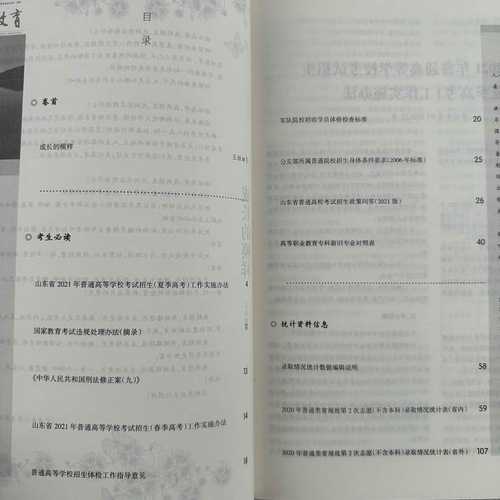 教育
目
录
◎ 卷首
成长的模样
◎ 考生必读
山东省2021年普通高等学校考试招生(夏季高考)工作实施办法 4
国家教育考试违规处理办法(摘录)
《中华人民共和国刑法修正案(九)》 13
山东省2021年普通高等学校考试招生(春季高考)工作实施办法 14
普通高等学校招生体检工作指导意见
军队院校招收学员体格检查标准 20
公安部所属普通院校招生身体条件要求(2006年标准) 25
山东省普通高校考试招生政策问答(2021版) 26
高等职业教育专科新旧专业对照表 40
◎ 统计资料信息
录取情况统计数据编辑说明 58
2020年普通类常规批第2次志愿(不含本科)录取情况统计表(省内) 59
2020年普通类常规批第2次志愿(不含本科)录取情况统计表(省外) 107